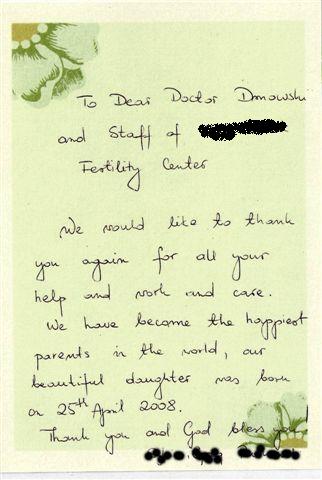 To Dear Doctor Dmowski
and Staff of
Fertility Center
We would like to thank
you again for all your
help and work and care.
We have become the happiest
parents in the world, our
beautiful daughter was born
on 25th April 2008.
Thank you and God bless you